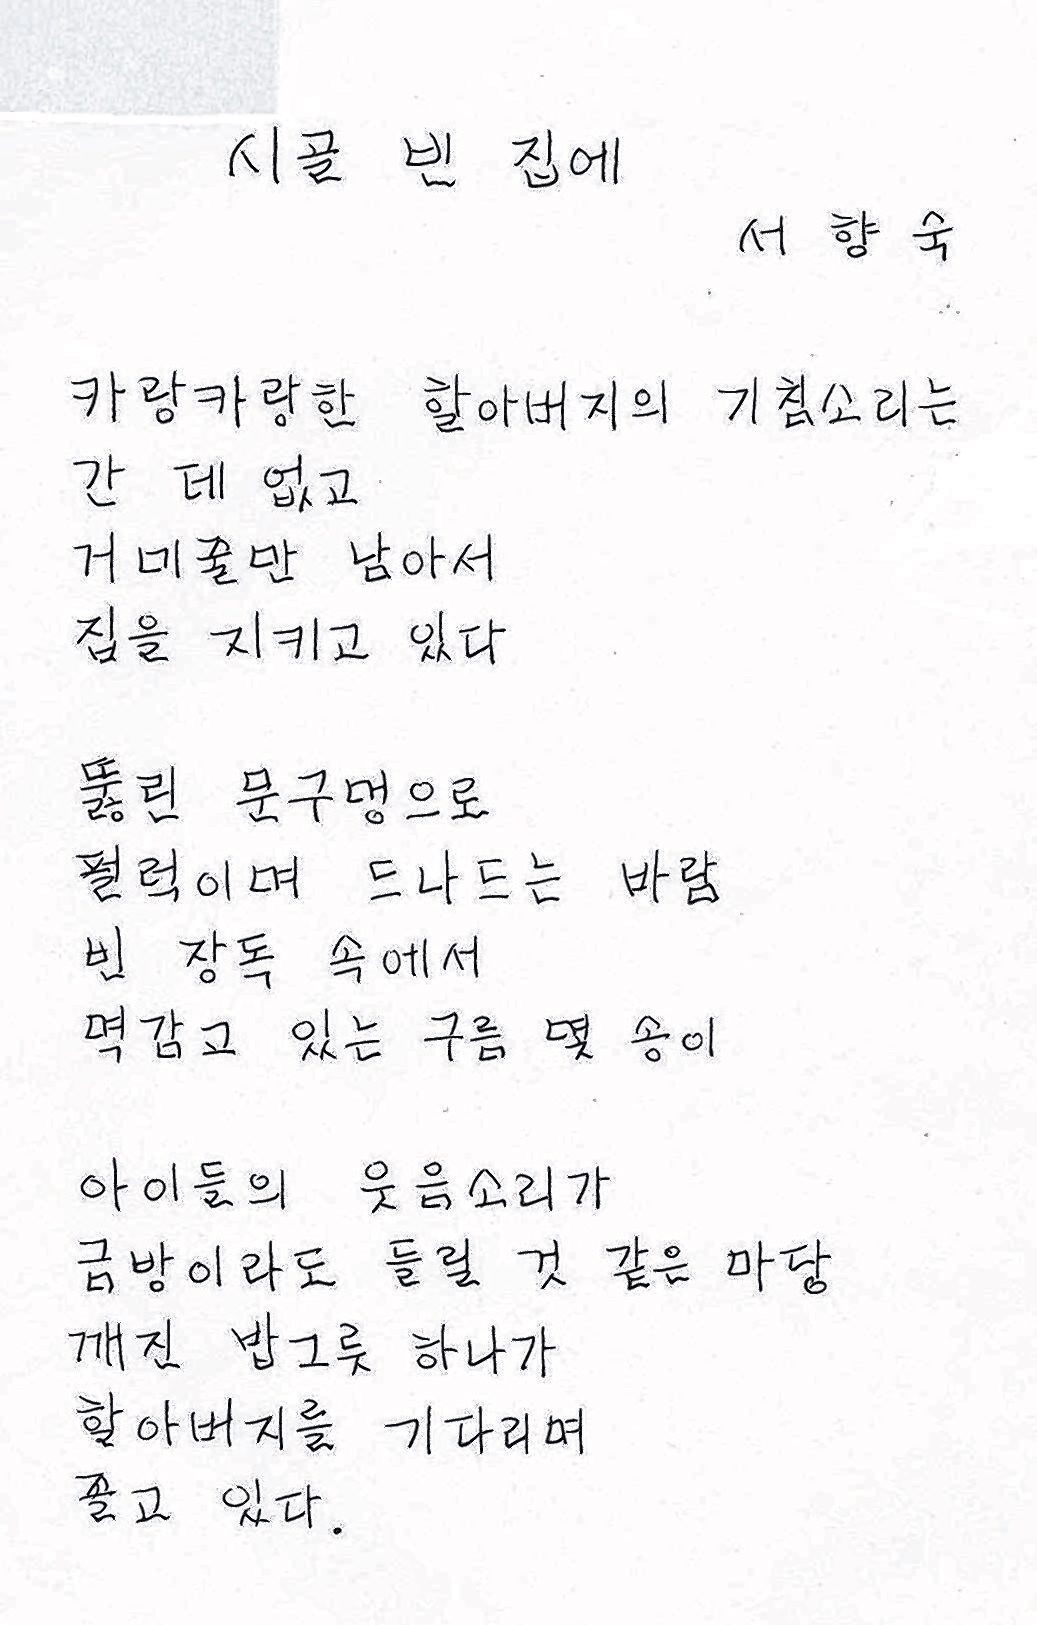 시골 빈 집에
서 향 숙
카랑카랑한 할아버지의 기침소리는
간 데 없고
거미줄만 남아서
집을 지키고 있다
뚫린 문구멍으로
펄럭이며 드나드는 바람
빈 장독 속에서
멱감고 있는 구름 몇 송이
아이들의 웃음소리가
금방이라도 들릴 것 같은 마당
깨진 밥그릇 하나가
할아버지를 기다리며
졸고 있다.